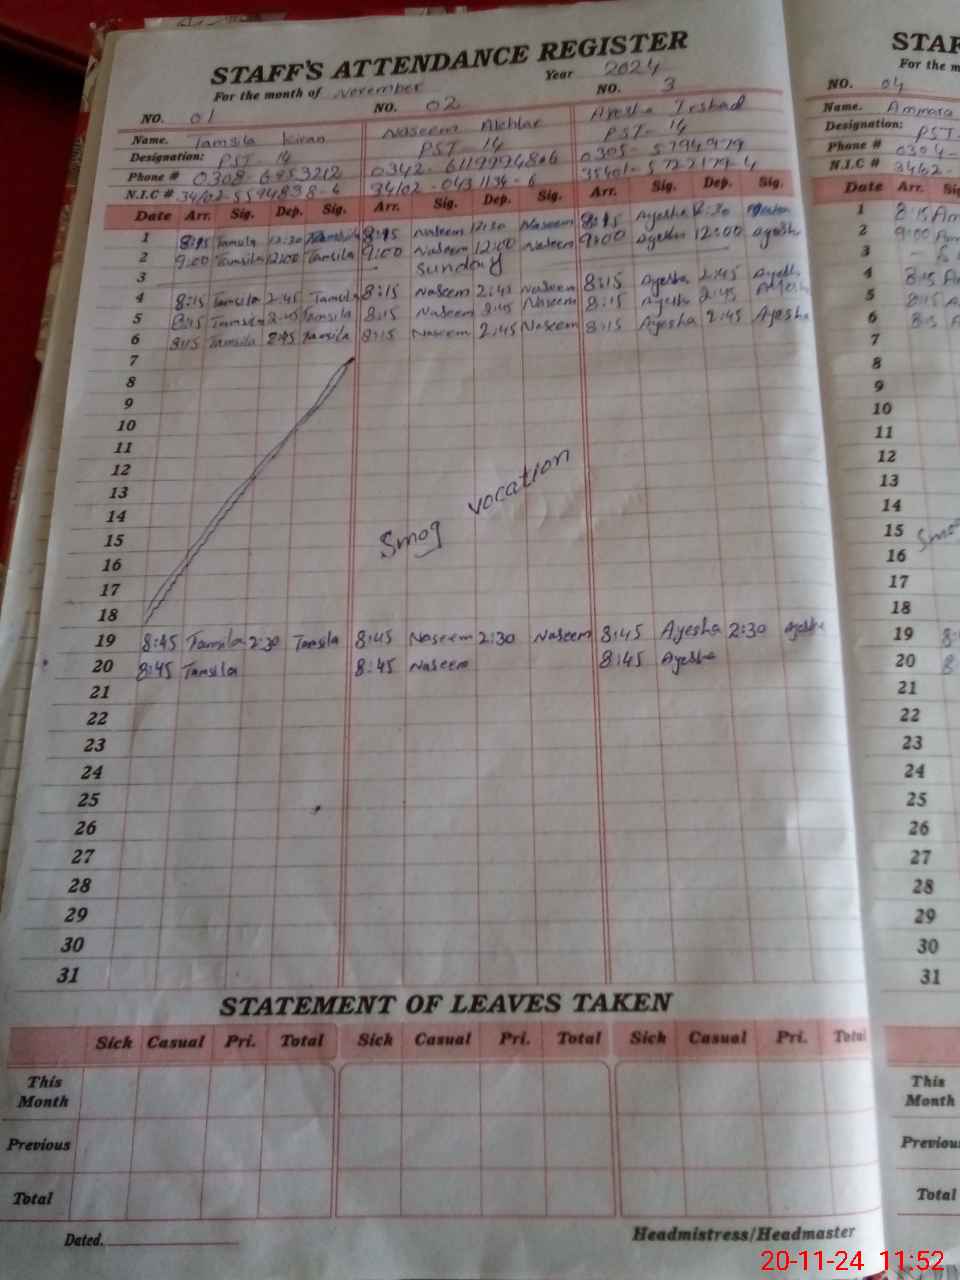 STAFF'S ATTENDANCE REGISTER
For the month of November Year 2024
NO. 01 NO. 02 NO. 3
Name. Tamsila Kiran Naseem Akhtar Ayesha Irshad
Designation: PST-14 PST-14 PST-14
Phone # 0308-6853212 0342-61199948*6 0305-5794979
N.I.C # 34102-5594838-6 34102-0431134-6 35401-5722179-4
Date Arr. Sig. Dep. Sig. Arr. Sig. Dep. Sig. Arr. Sig. Dep. Sig.
1 8:15 Tamsila 12:30 Tamsila 8:15 Naseem 12:30 Naseem 8:15 Ayesha 12:30 Ayesha
2 9:00 Tamsila 12:00 Tamsila 9:00 Naseem 12:00 Naseem 9:00 Ayesha 12:00 Ayesha
3 Sunday
4 8:15 Tamsila 2:45 Tamsila 8:15 Naseem 2:45 Naseem 8:15 Ayesha 2:45 Ayesha
5 8:15 Tamsila 2:45 Tamsila 8:15 Naseem 2:45 Naseem 8:15 Ayesha 2:45 Ayesha
6 8:15 Tamsila 2:45 Tamsila 8:15 Naseem 2:45 Naseem 8:15 Ayesha 2:45 Ayesha
7
8
9
10
11
12
13
14
15
16
17
18
Smog vocation
19 8:45 Tamsila 2:30 Tamsila 8:45 Naseem 2:30 Naseem 8:45 Ayesha 2:30 Ayesha
20 8:45 Tamsila 8:45 Naseem 8:45 Ayesha
21
22
23
24
25
26
27
28
29
30
31
STATEMENT OF LEAVES TAKEN
Sick Casual Pri. Total Sick Casual Pri. Total Sick Casual Pri. Total
This Month
Previous
Total
Dated. Headmistress/Headmaster
STAF
For the m
NO. 04
Name. Ammara
Designation: PST
Phone # 0304-
N.I.C # 34102-
Date Arr. Sig.
1 8:15 Am
2 9:00 Am
3
4 8:15 A
5 8:15 A
6 8:15 A
7
8
9
10
11
12
13
14
15 Smo
16
17
18
19 8:
20 8
21
22
23
24
25
26
27
28
29
30
31
This Month
Previou
Total
20-11-24 11:52